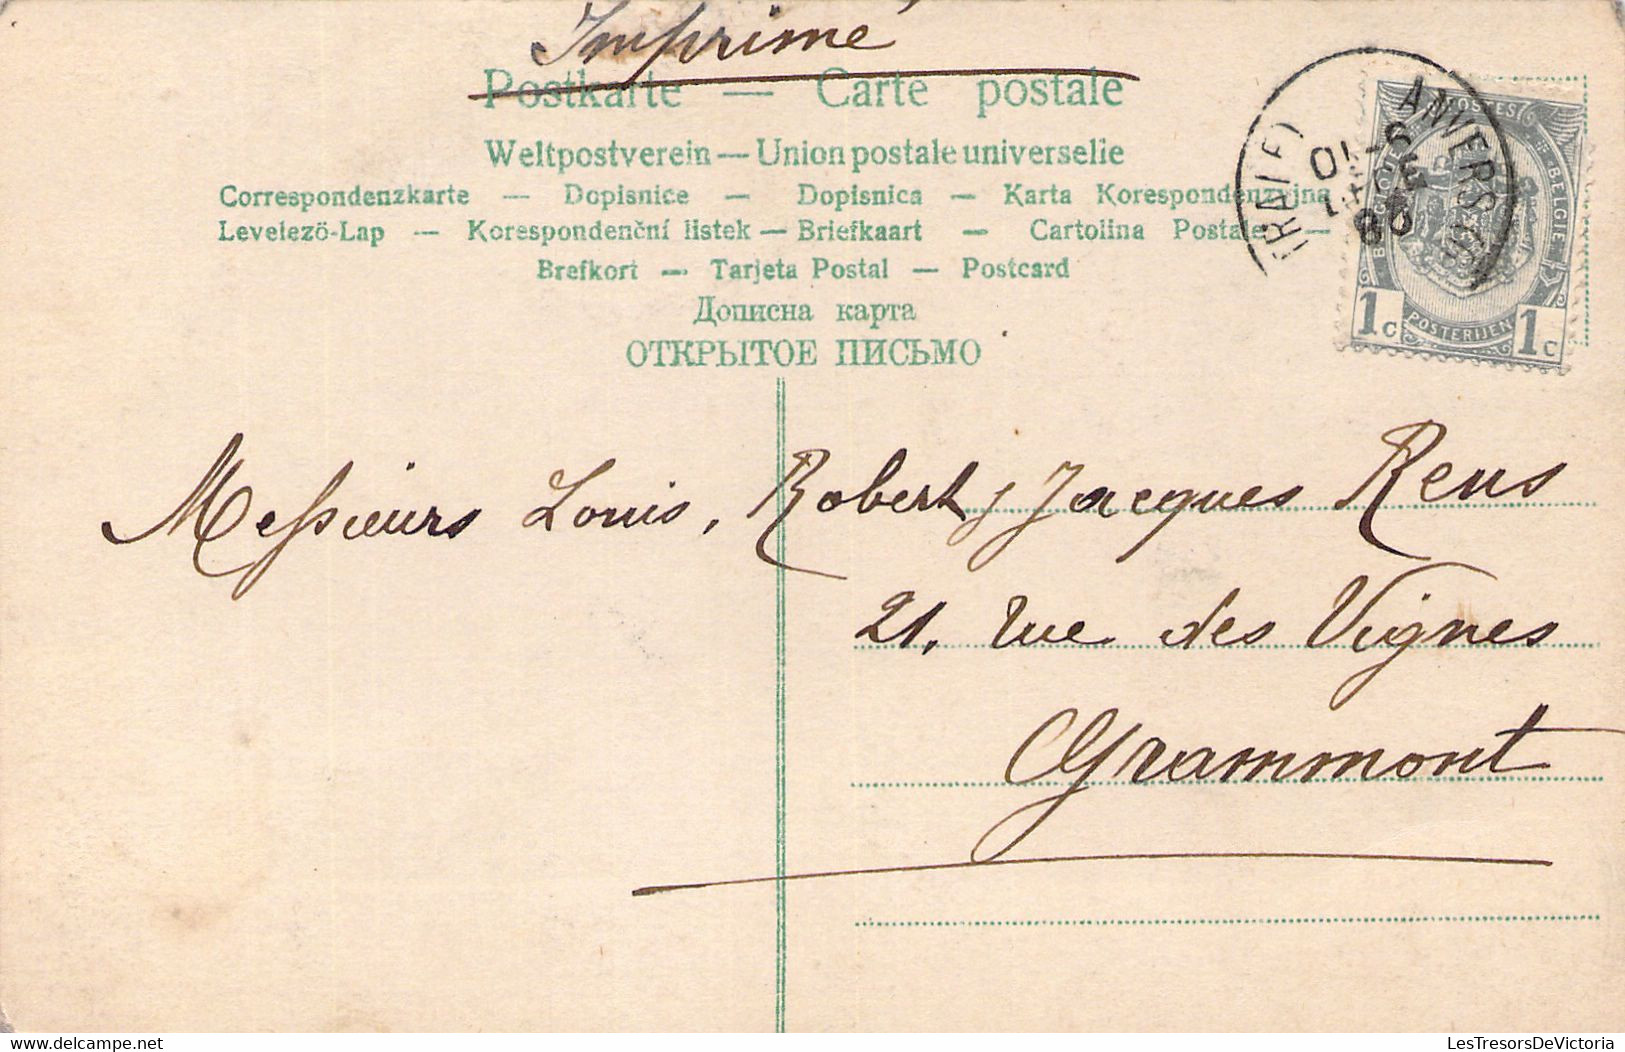 Imprimé
Postkarte — Carte postale
Weltpostverein — Union postale universelle
Correspondenzkarte — Dopisnice — Dopisnica — Karta Korespondenzyjna
Levelezö-Lap — Korespondenční listek — Briefkaart — Cartolina Postale —
Brefkort — Tarjeta Postal — Postcard
Дописна карта
ОТКРЫТОЕ ПИСЬМО
ANVERS
POSTES
BELGIE
BELGIQUE
POSTERIJEN
1c 1c
Messieurs Louis, Robert, Jacques Rens
21, rue des Vignes
Grammont
LesTresorsDeVictoria.delcampe.net